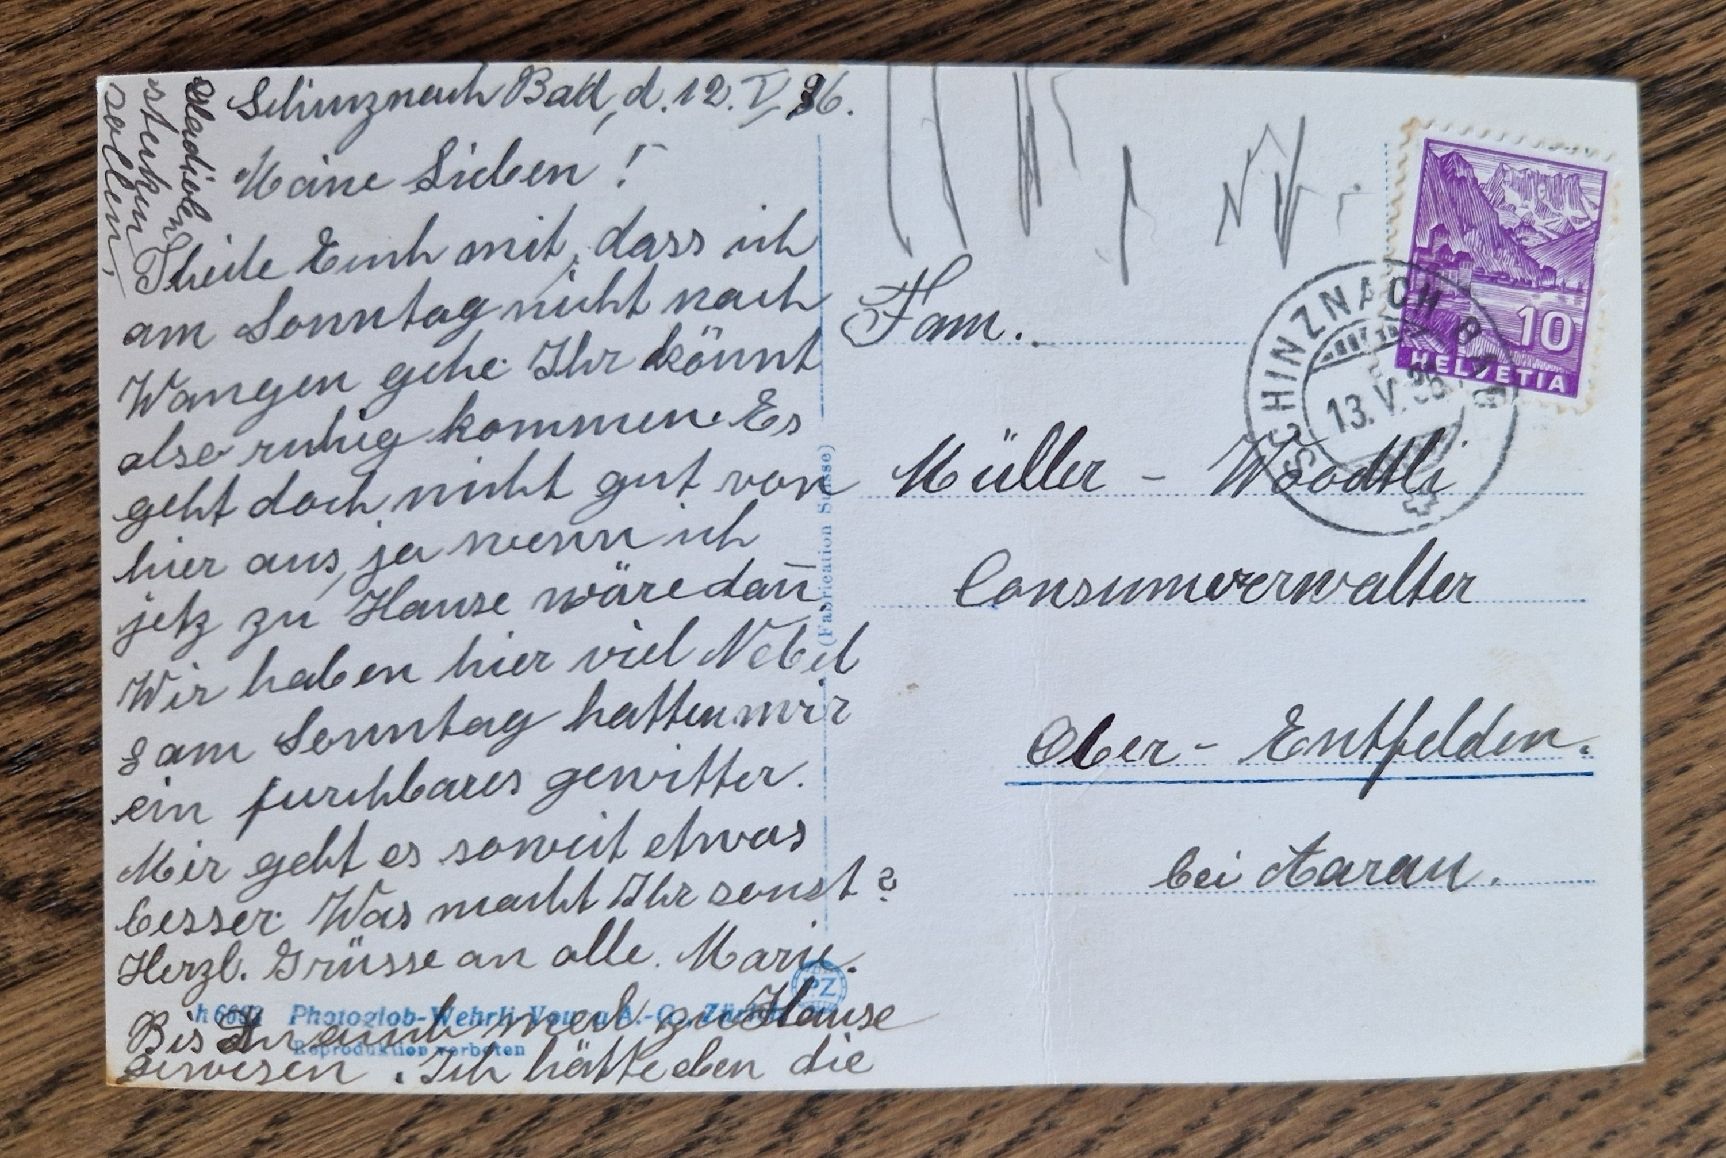 Schinznach Bad, d. 12. V. 36.
Meine Lieben!
Theile Euch mit, dass ich
am Sonntag nicht nach
Wangen gehe. Ihr könnt
also ruhig kommen. Es
geht doch nicht gut von
hier aus, ja wenn ich
jetz zu Hause wäre dañ
Wir haben hier viel Nebel
am Sonntag hatten wir
ein furchbares gewitter.
Mir geht es soweit etwas
besser. Was macht Ihr sonst?
Herzl. Grüsse an alle. Marie.
Bis auch mal zu Hause
gewesen. Ich hätte eben die
Gladiolen
stecken
sollen,
Fam.
Müller - Woodtli
Consumverwalter
Ober - Entfelden.
bei Aarau.
SCHINZNACH BAD
13.V.36
10
HELVETIA
(Fabrication Suisse)
PZ
Photoglob-Wehrli-Vouga A.-G., Zürich
Reproduktion verboten